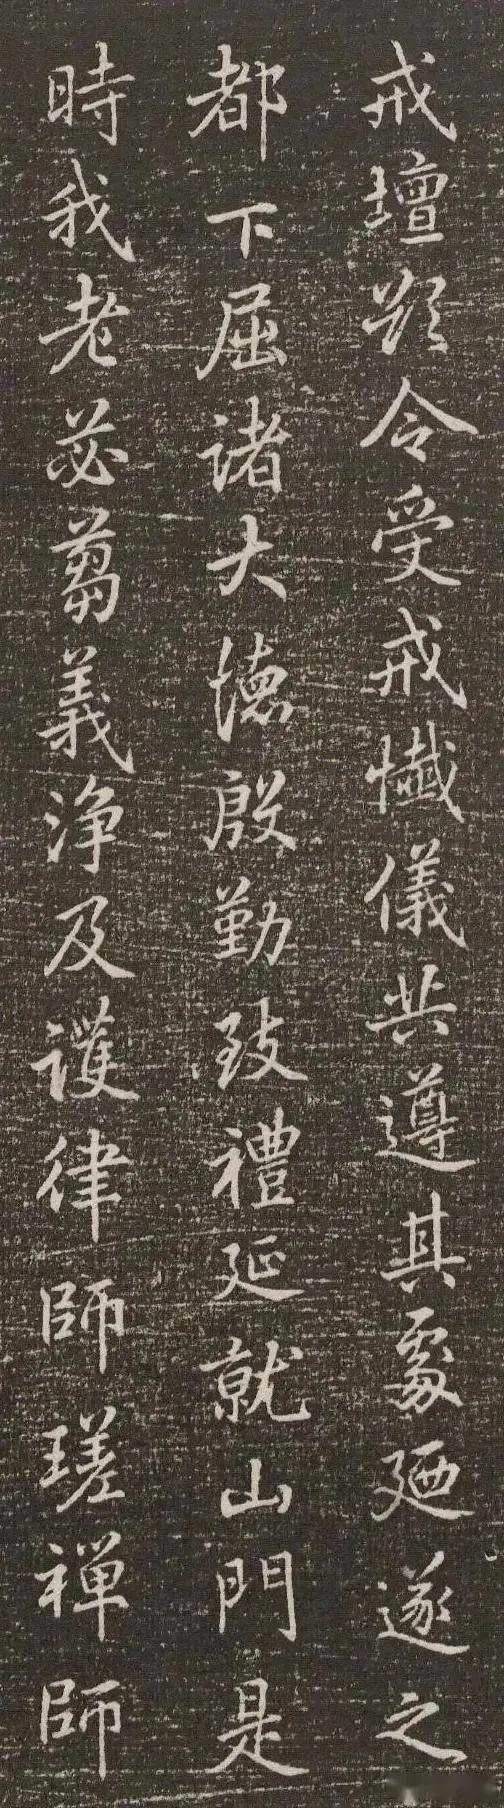 戒壇欲令受戒懺儀共遵其處廼遂之
都下屈諸大德殷勤致禮延就山門是
時我老苾芻義淨及護律師瑳禪師